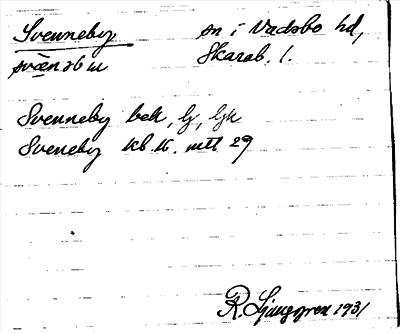 Svenneby sn i Vadsbo hd,
Skarab. l.
Svenneby bek, lj, ljk
Sveneby kb 16. mtl 29
R. Ljunggren 1931